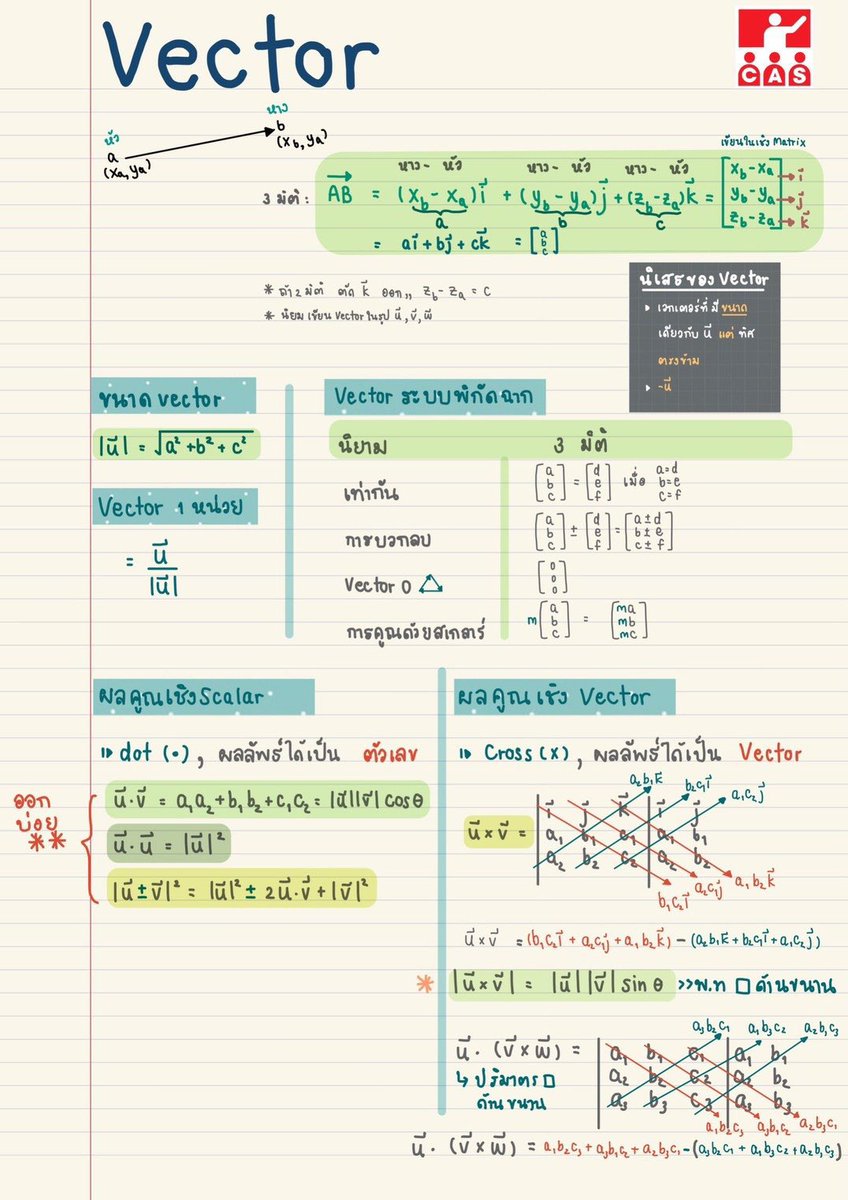 Vector
CAS
หัว
a
(xa, ya)
หาง
b
(xb, ya)
เขียนในเชิง Matrix
หาง - หัว หาง - หัว หาง - หัว
3 มิติ : AB⃗ = (xb-xa)i⃗ + (yb-ya)j⃗ + (zb-za)k⃗ = [xb-xa → i⃗
yb-ya → j⃗
zb-za] → k⃗
a b c
= ai⃗ + bj⃗ + ck⃗ = [a b c]
* ถ้า 2 มิติ ตัด k⃗ ออก,, zb-za = c
* นิยมเขียน Vector ในรูป u⃗, v⃗, w⃗
นิเสธของ Vector
เวกเตอร์ที่ มี ขนาด
เดียวกับ u⃗ แต่ ทิศ
ตรงข้าม
-u⃗
ขนาด vector
|u⃗| = √a²+b²+c²
Vector 1 หน่วย
= u⃗/|u⃗|
Vector ระบบพิกัดฉาก
นิยาม 3 มิติ
เท่ากัน [a b c] = [d e f] เมื่อ a=d b=e c=f
การบวกลบ [a b c] ± [d e f] = [a±d b±e c±f]
Vector 0 [0 0 0]
การคูณด้วยสเกลาร์ m[a b c] = [ma mb mc]
ผลคูณเชิง Scalar
dot (•), ผลลัพธ์ได้เป็น ตัวเลข
ออก
บ่อย
**
u⃗·v⃗ = a₁a₂+b₁b₂+c₁c₂ = |u⃗||v⃗|cosθ
u⃗·u⃗ = |u⃗|²
|u⃗±v⃗|² = |u⃗|² ± 2u⃗·v⃗ + |v⃗|²
ผลคูณเชิง Vector
Cross (x), ผลลัพธ์ได้เป็น Vector
a₂b₁k⃗ b₂c₁i⃗ a₁c₂j⃗
u⃗×v⃗ = | i⃗ j⃗ k⃗ | i⃗ j⃗
a₁ b₁ c₁ | a₁ b₁
a₂ b₂ c₂ | a₂ b₂
b₁c₂i⃗ a₂c₁j⃗ a₁b₂k⃗
u⃗×v⃗ = (b₁c₂i⃗ + a₂c₁j⃗ + a₁b₂k⃗) - (a₂b₁k⃗ + b₂c₁i⃗ + a₁c₂j⃗)
* |u⃗×v⃗| = |u⃗||v⃗| sin θ >> พ.ท □ ด้านขนาน
a₃b₂c₁ a₁b₃c₂ a₂b₁c₃
u⃗·(v⃗×w⃗) = | a₁ b₁ c₁ | a₁ b₁
a₂ b₂ c₂ | a₂ b₂
a₃ b₃ c₃ | a₃ b₃
↳ ปริมาตร □
ด้านขนาน
a₁b₂c₃ a₃b₁c₂ a₂b₃c₁
u⃗·(v⃗×w⃗) = a₁b₂c₃ + a₃b₁c₂ + a₂b₃c₁ - (a₃b₂c₁ + a₁b₃c₂ + a₂b₁c₃)